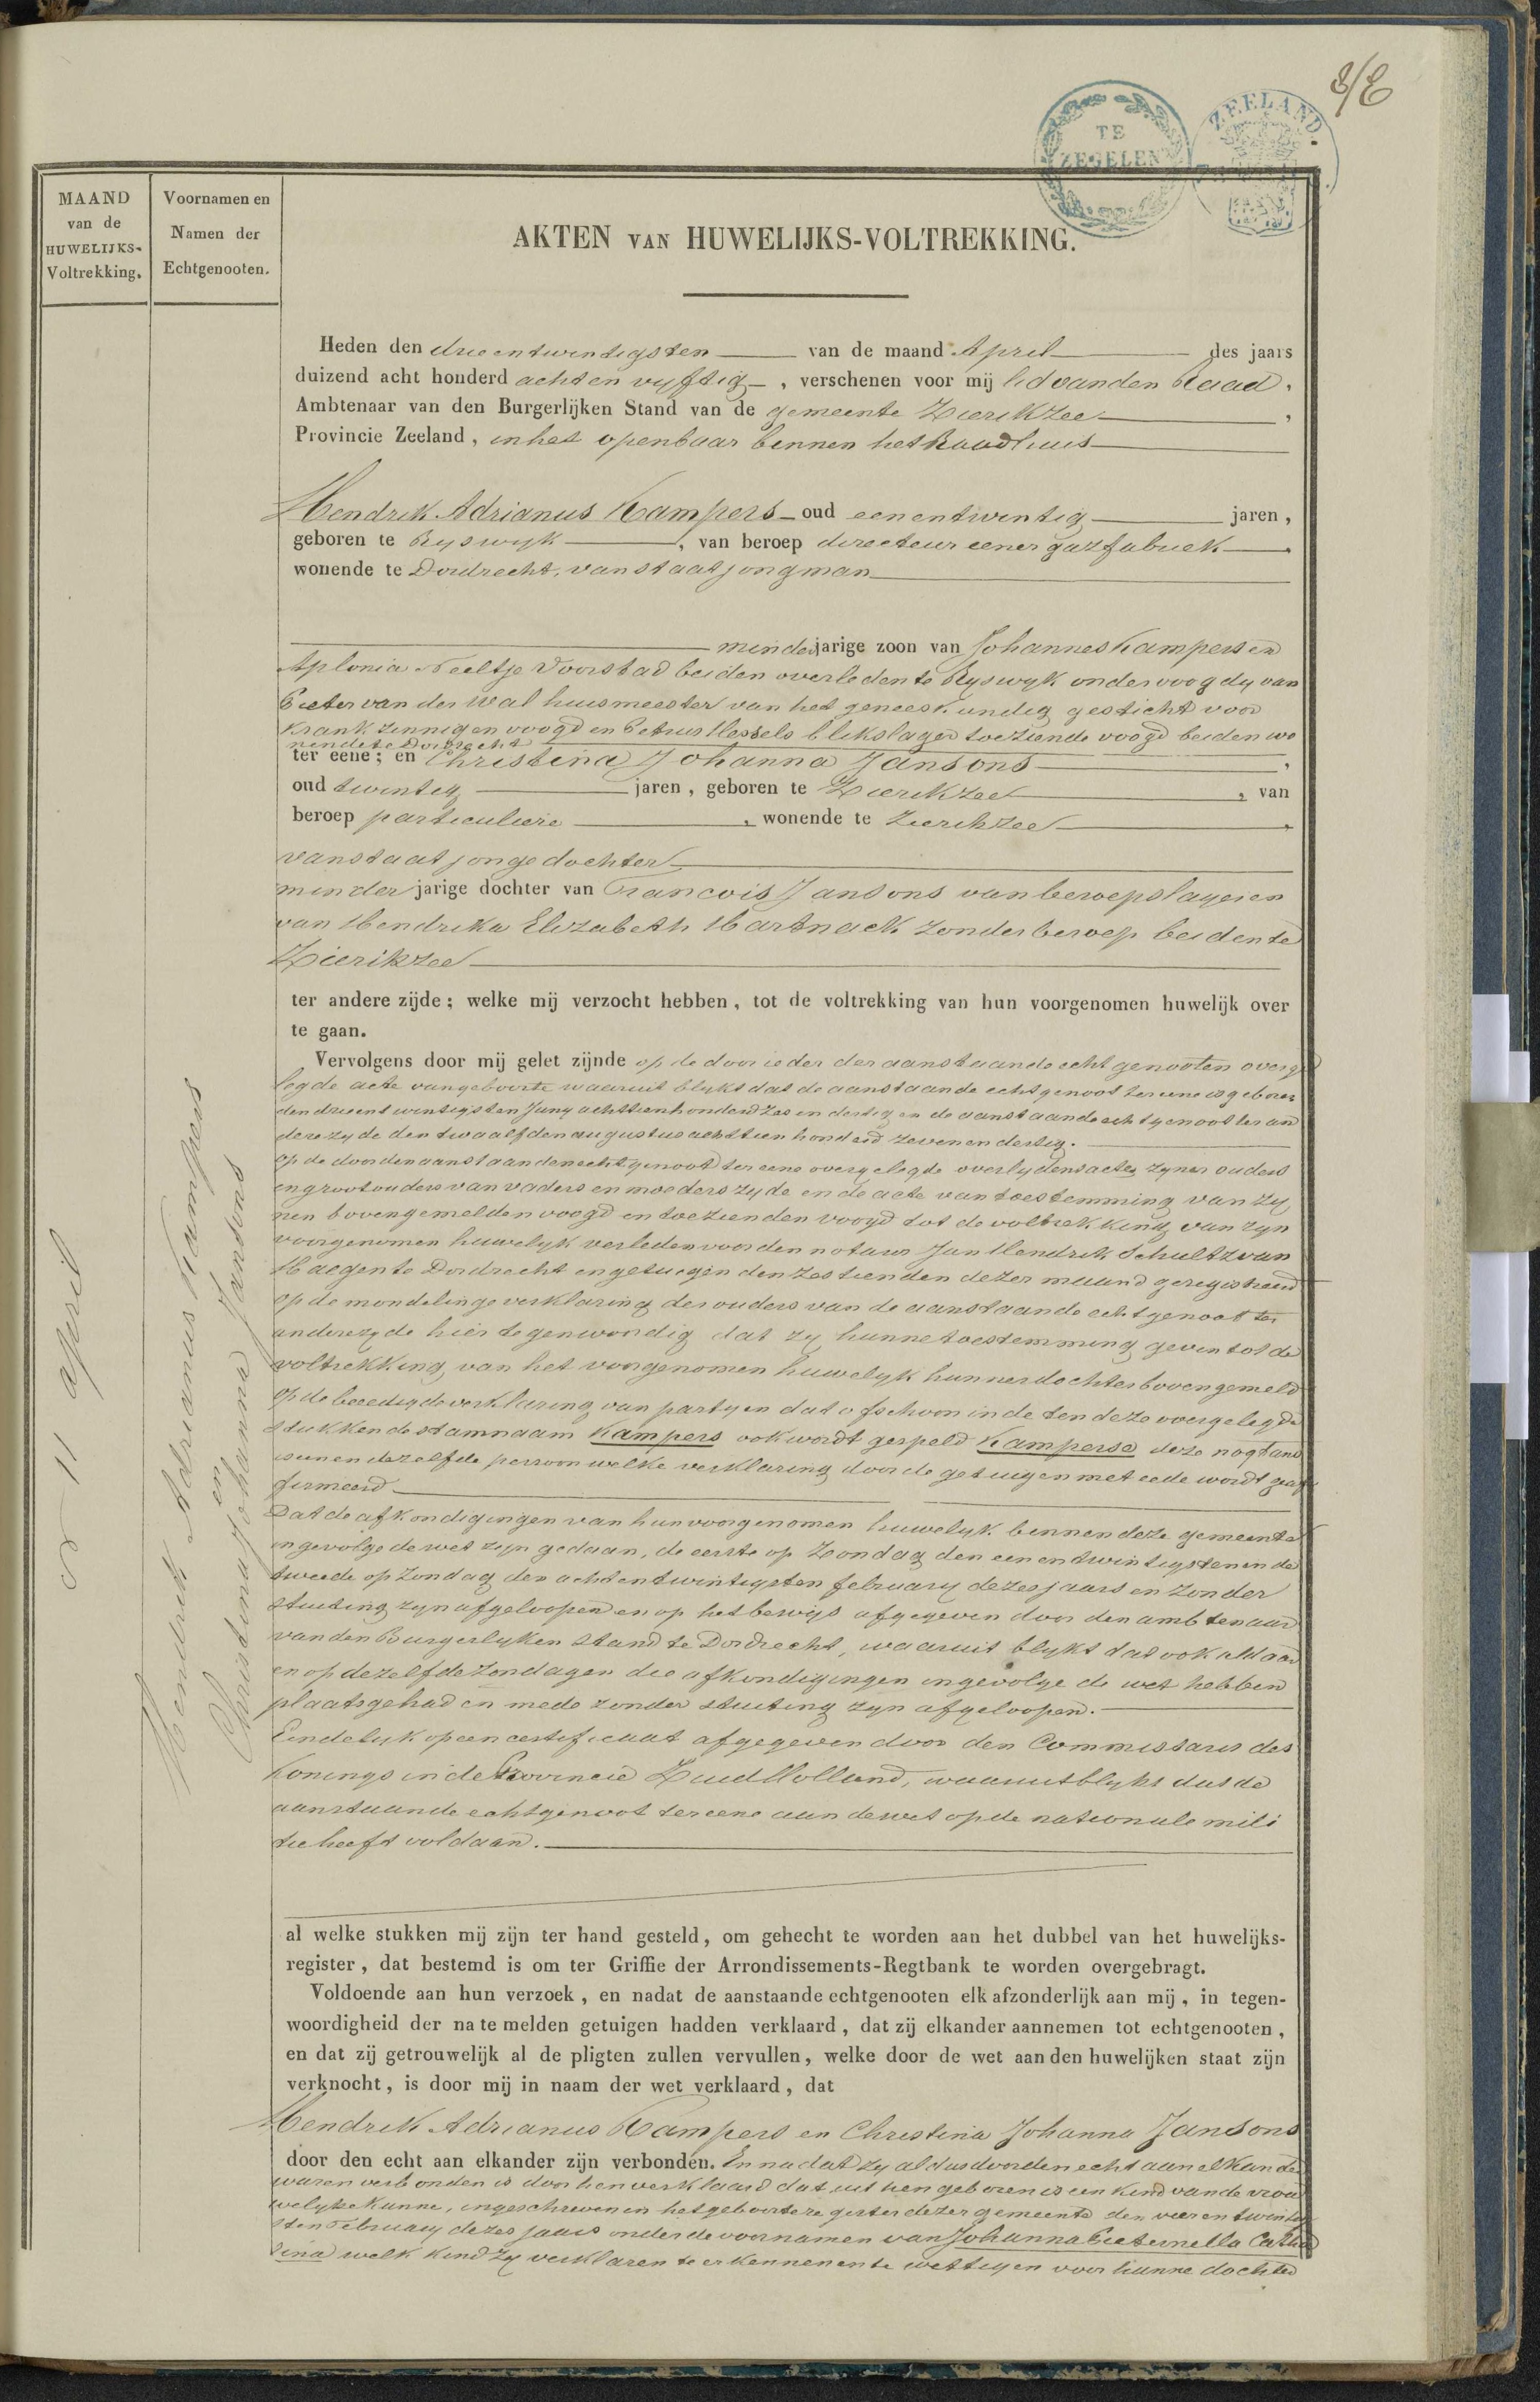 8/E
TE
ZEGELEN
ZEELAND.
MAAND
van de
HUWELIJKS-
Voltrekking.
Voornamen en
Namen der
Echtgenooten.
AKTEN VAN HUWELIJKS-VOLTREKKING.
8 11 april
Hendrik Adrianus Kampers
en
Christina Johanna Jansons
Heden den drieentwintigsten van de maand April des jaars
duizend acht honderd acht en vyftig , verschenen voor mij lid van den Raad ,
Ambtenaar van den Burgerlijken Stand van de gemeente Zierikzee ,
Provincie Zeeland , in het openbaar binnen het Raadhuis
Hendrik Adrianus Kampers oud eenentwintig jaren ,
geboren te Ryswyk , van beroep directeur eener gazfabriek
wonende te Dordrecht, van staat jongman
minderjarige zoon van Johannes Kampers en
Aplonia Neeltje Voorstad beiden overleden te Ryswyk onder voogdy van
Pieter van der Wal huismeester van het geneeskundig gesticht voor
krankzinnigen voogd en Petrus Hessels blikslager toeziende voogd beiden wo
nende te Dordrecht
ter eene ; en Christina Johanna Jansons ,
oud twintig jaren , geboren te Zierikzee , van
beroep particuliere , wonende te Zierikzee
van staat jongedochter
minder jarige dochter van Francois Jansons van beroep slager en
van Hendrika Elizabeth Hartnack zonder beroep beiden te
Zierikzee
ter andere zijde ; welke mij verzocht hebben , tot de voltrekking van hun voorgenomen huwelijk over
te gaan.
Vervolgens door mij gelet zijnde op de door ieder der aanstaande echtgenooten overge
legde acte van geboorte waaruit blykt dat de aanstaande echtgenoot ter eene is geboren
den drieentwintigsten Juny achttienhonderd zes en dertig en de aanstaande echtgenoot ter an
dere zyde den twaalfden augustus achttien honderd zevenendertig.
Op de door den aanstaanden echtgenoot ter eene overgelegde overlydensactes zyner ouders
en grootouders van vaders en moeders zyde en de acte van toestemming van zy
nen bovengemelden voogd en toezienden voogd tot de voltrekking van zyn
voorgenomen huwelyk verleden voor den notaris Jan Hendrik Schultz van
Haegen te Dordrecht en getuigen den zestienden dezer maand geregistreerd
op de mondelinge verklaring der ouders van de aanstaande echtgenoot ter
andere zyde hier tegenwoordig dat zy hunne toestemming geven tot de
voltrekking van het voorgenomen huwelyk hunner dochter bovengemeld
op de beeedigde verklaring van partyen dat ofschoon in de ten deze overgelegde
stukken de stamnaam Kampers ook wordt gespeld Kamperse deze nogtans
is een en dezelfde persoon welke verklaring door de getuigen met eede wordt geaf
firmeerd
Dat de afkondigingen van hun voorgenomen huwelyk binnen deze gemeente
ingevolge de wet zyn gedaan, de eerste op Zondag den een en twintigsten en de
tweede op Zondag den achtentwintigsten february dezes jaars en zonder
stuiting zyn afgeloopen en op het bewys afgegeven door den ambtenaar
van den Burgerlyken Stand te Dordrecht, waaruit blykt dat ook aldaar
en op dezelfde Zondagen die afkondigingen ingevolge de wet hebben
plaats gehad en mede zonder stuiting zyn afgeloopen.
Eindelyk op een certificaat afgegeven door den Commissaris des
Konings in de Provincie Zuid Holland, waaruit blykt dat de
aanstaande echtgenoot ter eene aan de wet op de nationale mili
tie heeft voldaan.
al welke stukken mij zijn ter hand gesteld , om gehecht te worden aan het dubbel van het huwelijks-
register , dat bestemd is om ter Griffie der Arrondissements-Regtbank te worden overgebragt.
Voldoende aan hun verzoek , en nadat de aanstaande echtgenooten elk afzonderlijk aan mij , in tegen-
woordigheid der na te melden getuigen hadden verklaard , dat zij elkander aannemen tot echtgenooten ,
en dat zij getrouwelijk al de pligten zullen vervullen , welke door de wet aan den huwelijken staat zijn
verknocht , is door mij in naam der wet verklaard , dat
Hendrik Adrianus Kampers en Christina Johanna Jansons
door den echt aan elkander zijn verbonden. En nadat zy aldus door den echt aan elkander
waren verbonden is door hen verklaard dat uit hen geboren is een kind van de vrou
welyke kunne, ingeschreven in het geboorteregister dezer gemeente den vierentwintig
sten February dezes jaars onder de voornamen van Johanna Pieternella Catha
rina welk kind zy verklaren te erkennen en te wettigen voor hunne dochter